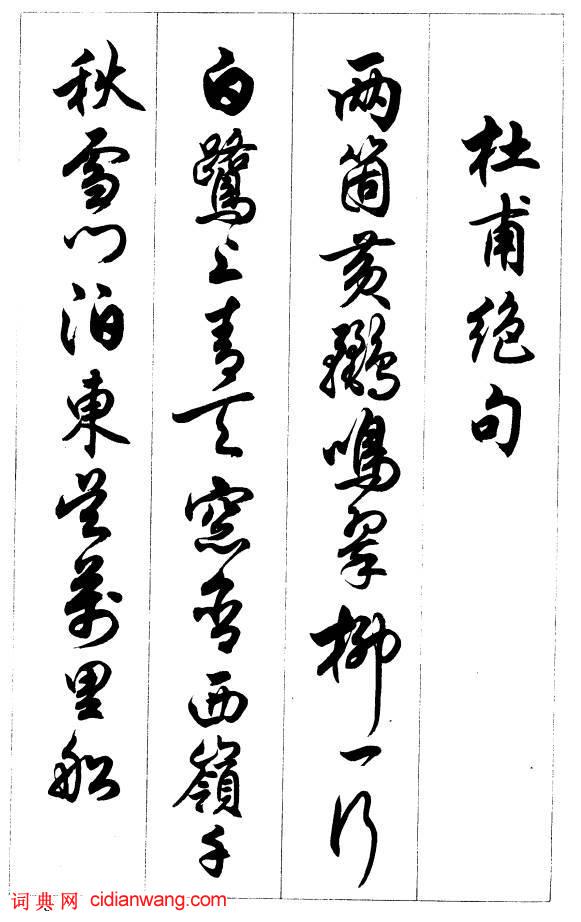 杜甫绝句
两箇黄鸝鳴翠柳一行
白鷺上青天窓含西嶺千
秋雪门泊東吴萬里船
词典网 cidianwang.com